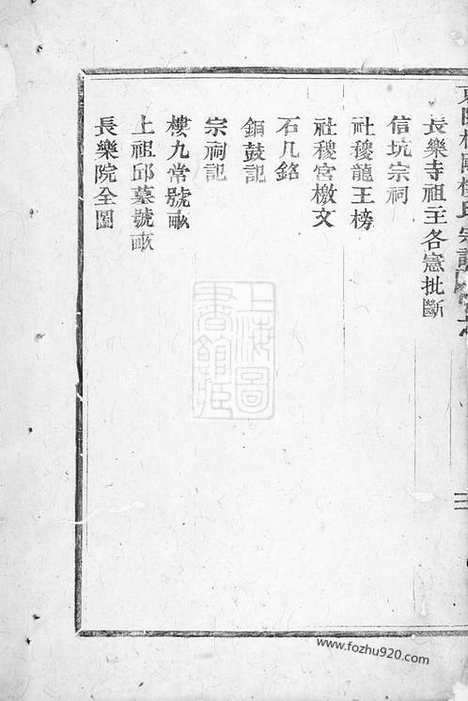 長樂寺祖王各憲批斷
信坑宗祠
社稷龍王榜
社稷宮檄文
石几銘
銅鼓記
宗祠記
樓九常號畝
上祖邱墓號畝
長樂院全圖
上海圖書館藏
www.fozhu920.com